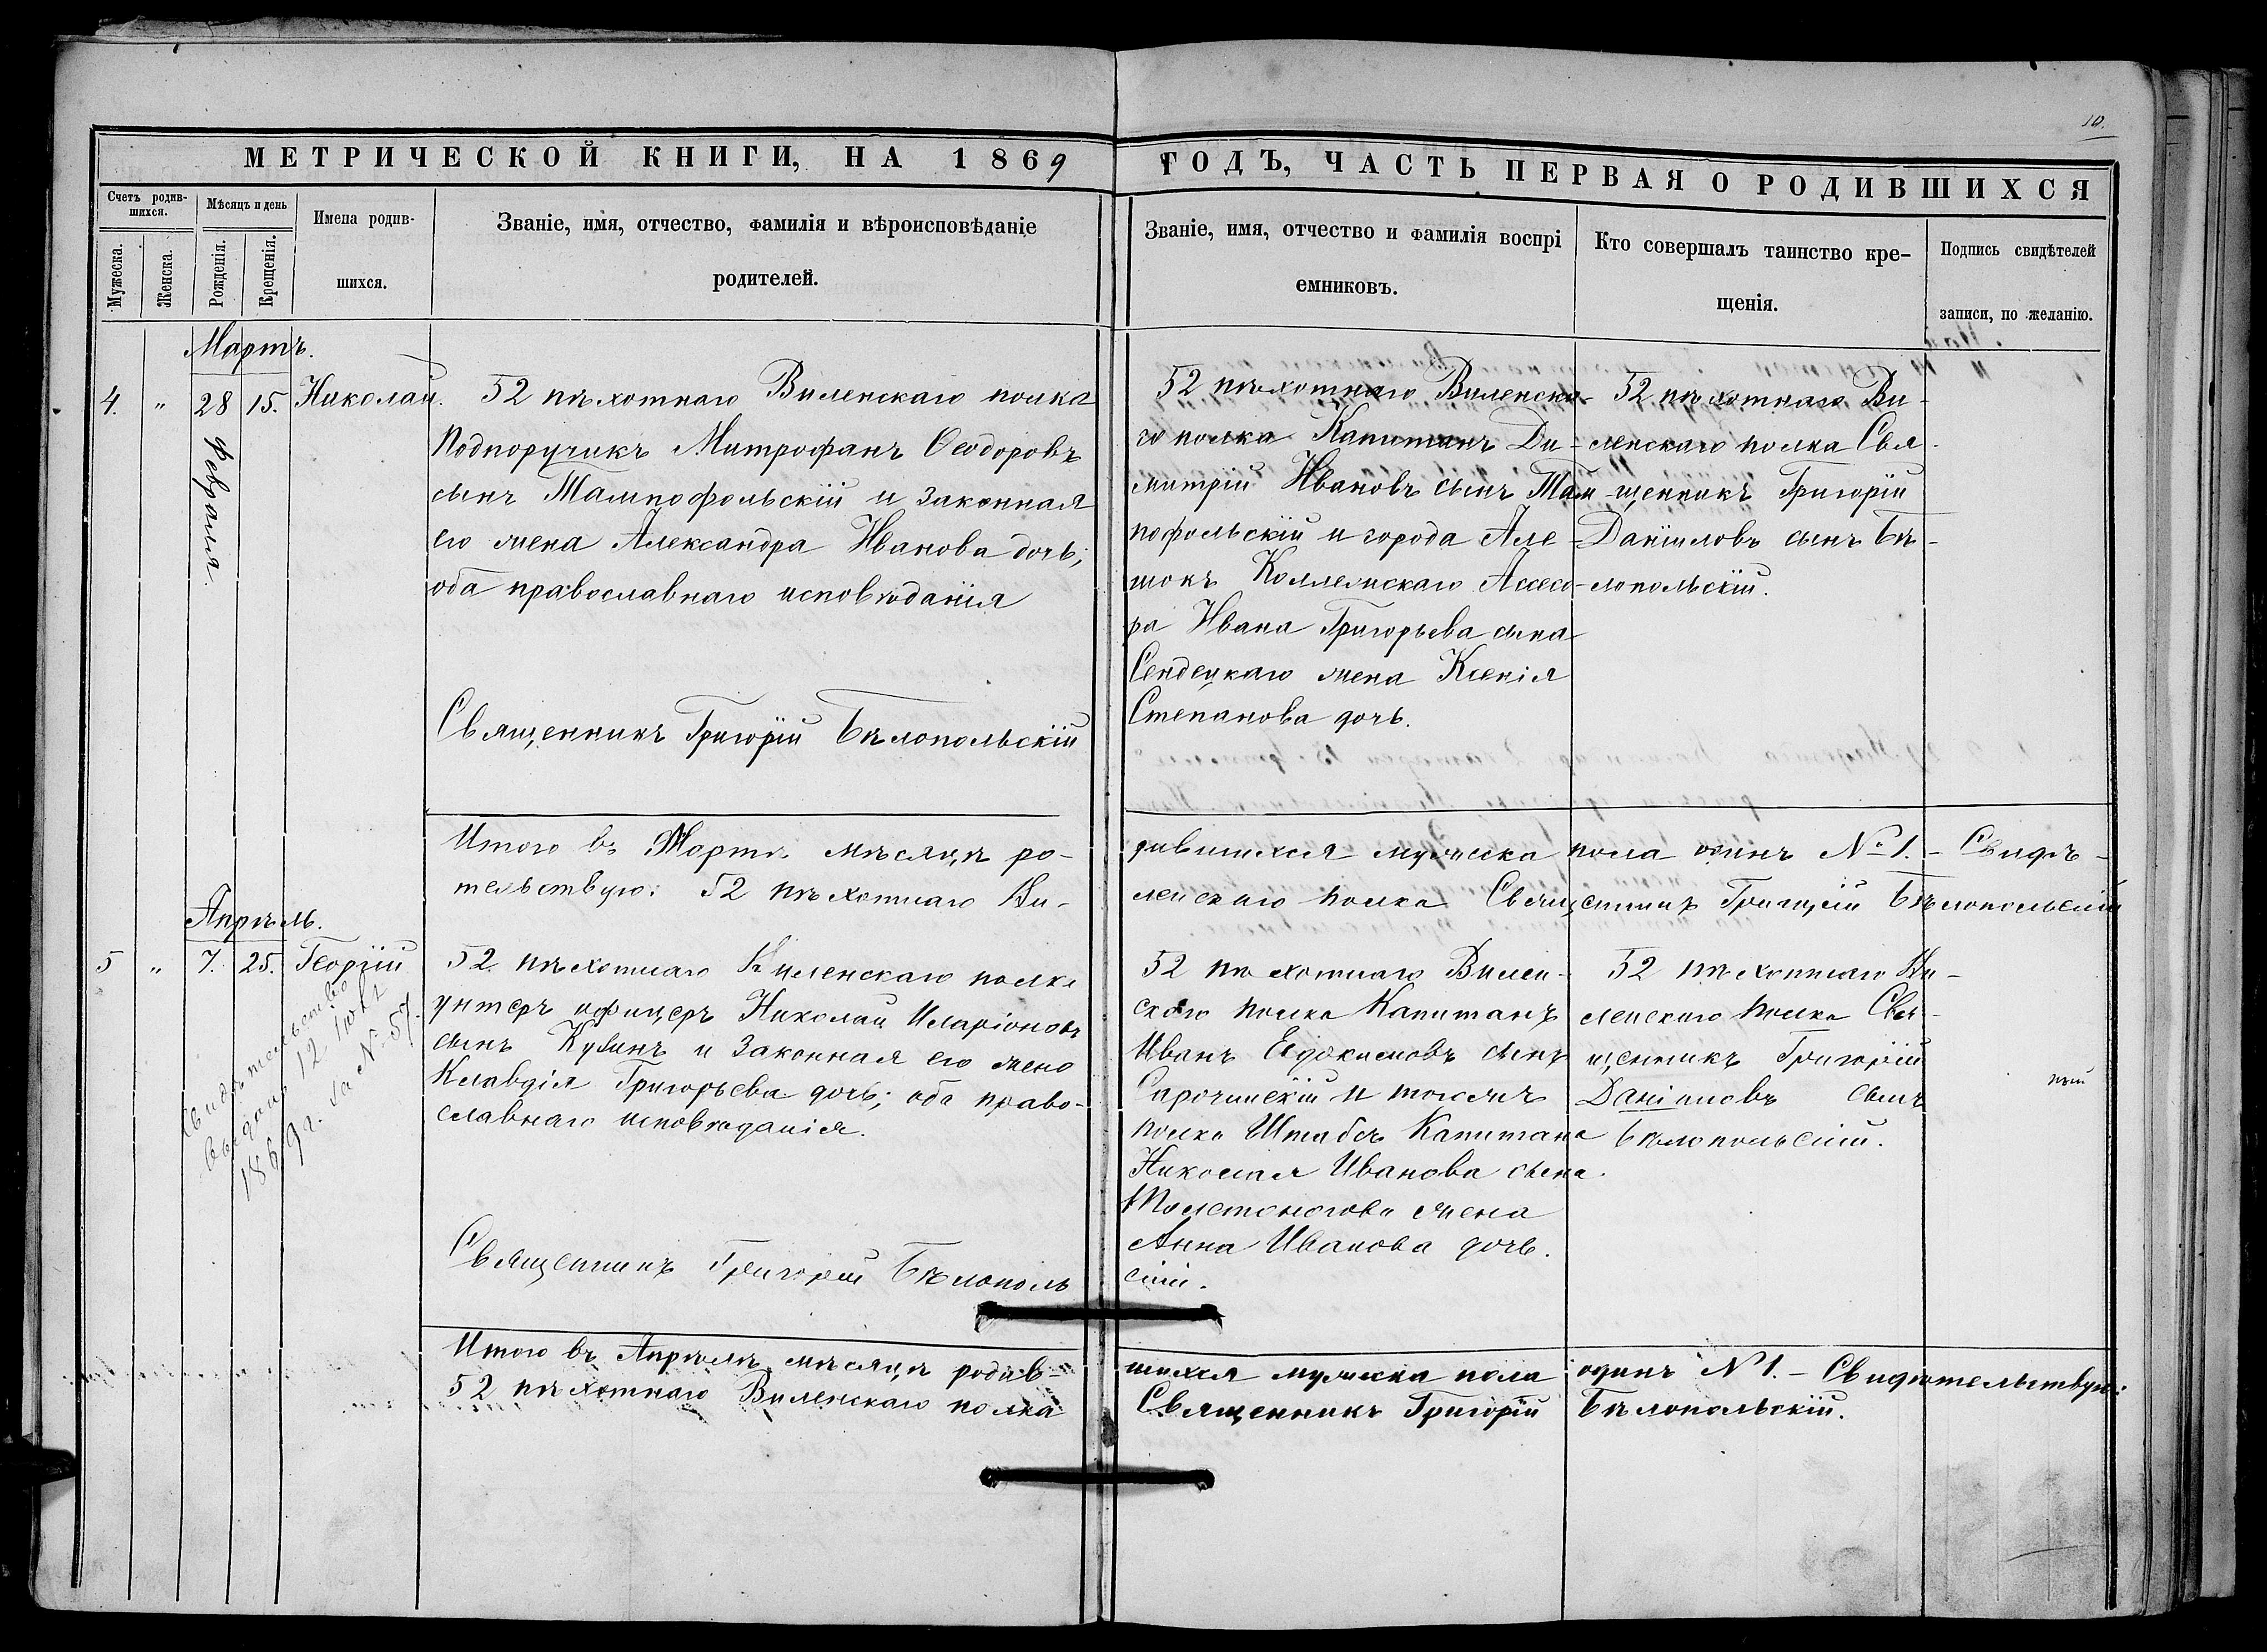 10.
МЕТРИЧЕСКОЙ КНИГИ, НА 1869
ГОДЪ, ЧАСТЬ ПЕРВАЯ О РОДИВШИХСЯ
Счетъ родив-
шихся.
Мужеска.
Женска.
Мѣсяцъ и день
Рожденія.
Крещенія.
Имена родив-
шихся.
Званіе, имя, отчество, фамилія и вѣроисповѣданіе
родителей.
Званіе, имя, отчество и фамилія воспрі
емниковъ.
Кто совершалъ таинство кре-
щенія.
Подпись свидѣтелей
записи, по желанію.
Мартъ.
4. " 28 15. Николай.
февраля.
52 пѣхотнаго Виленскаго полка
Подпоручикъ Митрофанъ Ѳеодоровъ
сынъ Тампофольскій и законная
его жена Александра Иванова дочь;
оба православнаго исповѣданія
Священникъ Григорій Бѣлопольскій
52 пѣхотнаго Виленска-
го полка Капитанъ Ди-
митрій Ивановъ сынъ Там
пофольскій и города Але-
шокъ Коллежскаго Ассесо-
ра Ивана Григорьева сына
Сендецкаго жена Ксенія
Степанова дочь.
52 пѣхотнаго Ви-
ленскаго полка Свя-
щенникъ Григорій
Даніиловъ сынъ Бѣ-
лопольскій.
Итого въ Мартѣ мѣсяцѣ ро-
дившихся мужеска пола одинъ № 1. - Свидѣ-
тельствую: 52 пѣхотнаго Ви-
ленскаго полка Священникъ Григорій Бѣлопольскій
Апрѣль.
5 " 7. 25. Георгій
Свидѣтельство
выдано 12 Юля
1869 г. за № 57.
52 пѣхотнаго Виленскаго полка
унтеръ офицеръ Николай Иларіоновъ
сынъ Кувинъ и законная его жена
Клавдія Григорьева дочь; оба право-
славнаго исповѣданія.
Священникъ Григорій Бѣлополь
скій.
52 пѣхотнаго Вилен-
скаго полка Капитанъ
Иванъ Евдокимовъ сынъ
Сарочинскій и тогожъ
полка Штабсъ Капитана
Николая Иванова сына
Толстоногова жена
Анна Иванова дочь.
52 пѣхотнаго Ви-
ленскаго полка Свя-
щенникъ Григорій
Даніиловъ сынъ
Бѣлопольскій.
Итого въ Апрѣлѣ мѣсяцѣ родив-
шихся мужеска пола одинъ № 1. - Свидѣтельствую:
52 пѣхотнаго Виленскаго полка
Священникъ Григорій Бѣлопольскій.